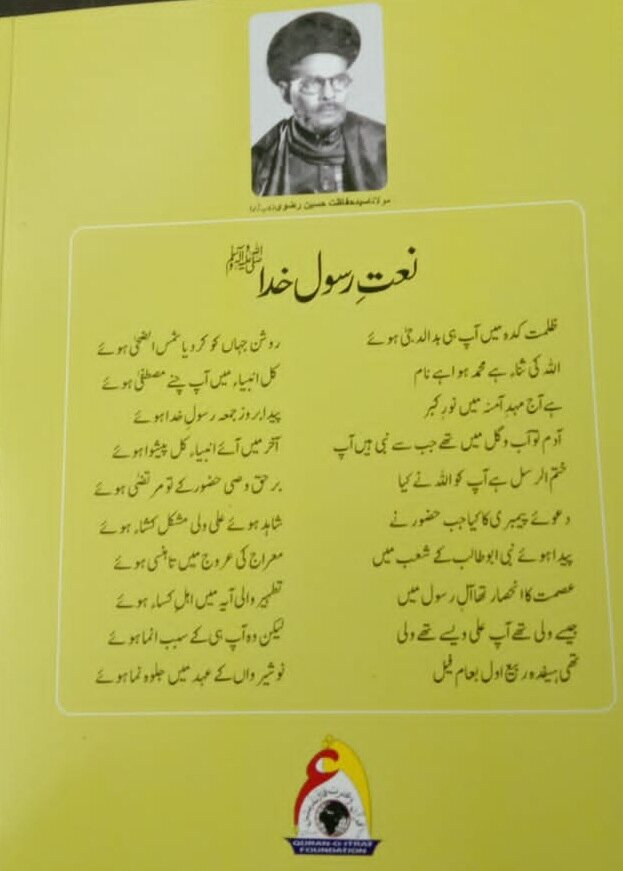 مولانا سید حفاظت حسین رضوی
نعتِ رسول خدا ﷺ
ظلمت کدہ میں آپ ہی بدالدجیٰ ہوئے روشن جہاں کو کر دیا شمس الضحیٰ ہوئے
اللہ کی ثناء ہے محمد ہوا ہے نام کل انبیاء میں آپ چنے مصطفیٰ ہوئے
ہے آج مہدِ آمنہ میں نورِ کبر پیدا بروز جمعہ رسولِ خدا ہوئے
آدم تو آب و گل میں تھے جب سے نبی ہیں آپ آخر میں آئے انبیاء کل پیشوا ہوئے
ختم الرسل ہے آپ کو اللہ نے کیا برحق وصی حضور کے تو مرتضیٰ ہوئے
دعوئے پیمبری کا کیا جب حضور نے شاہد ہوئے علی ولی مشکل کشاء ہوئے
پیدا ہوئے نبی ابو طالب کے شعب میں معراج کی عروج میں تا ہنسی ہوئے
عصمت کا انحصار تھا آلِ رسول میں تطہیر والی آیہ میں اہلِ کساء ہوئے
جیسے ولی تھے آپ علی ویسے تھے ولی لیکن وہ آپ ہی کے سبب انما ہوئے
تھی ہیفدہ ربیع اول بعام فیل نوشیرواں کے عہد میں جلوہ نما ہوئے
QURAN-O-ITRAT
FOUNDATION